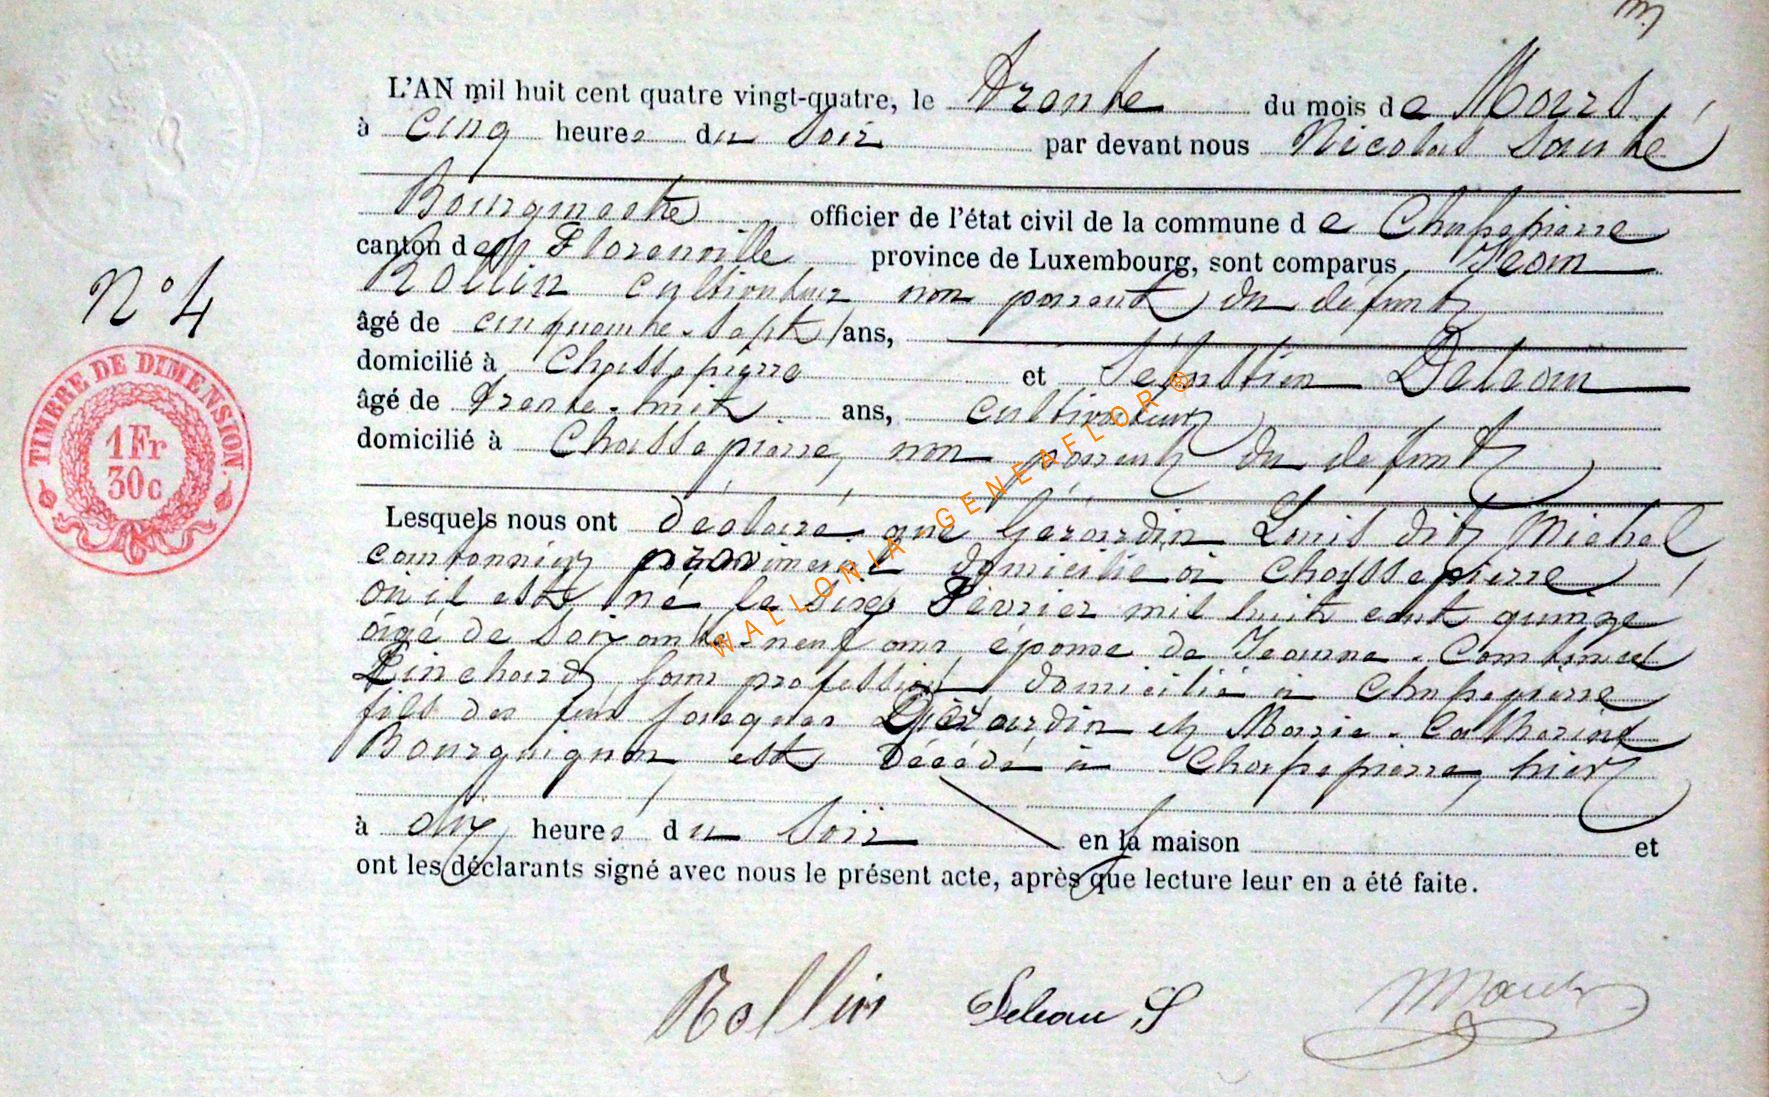 L'AN mil huit cent quatre vingt-quatre, le trente du mois de Mars
à cinq heures du soir par devant nous Nicolas
Bourgmestre officier de l'état civil de la commune de Chassepierre
canton de Florenville province de Luxembourg, sont comparus Jean
Rollin cultivateur non parent du défunt
N° 4
âgé de cinquante-sept ans,
domicilié à Chassepierre et Sébastien Deleau
âgé de trente-huit ans, cultivateur
domicilié à Chassepierre, non parent du défunt
TIMBRE DE DIMENSION
1 Fr
30 c
Lesquels nous ont déclaré que Gérardin Louis dit Michel
cantonnier domicilié à Chassepierre
où il est né le Février mil huit cent quinze
âgé de soixante-neuf ans époux de Jeanne
Pinchard, sans profession, domicilié à Chassepierre
fils de feu Jacques Gérardin et Marie-Catherine
Bourguignon est décédé à Chassepierre, hier
à heures du soir en la maison et
ont les déclarants signé avec nous le présent acte, après que lecture leur en a été faite.
Rollin Deleau S
WALLONIA GENEAFLOR ®